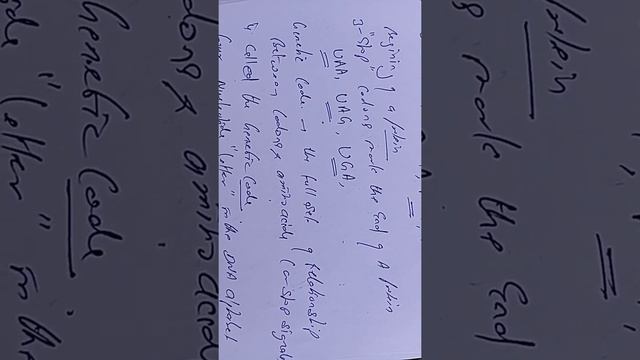 Begining of a protein
3 "stop" codons mark the End of A protein
UAA, UAG, UGA,
Genetic Code → the full set of Relationship
Between Codons & amino acids (or stop signal
is called the Genetic Code
Nucleotide "letter" in the DNA alphabet